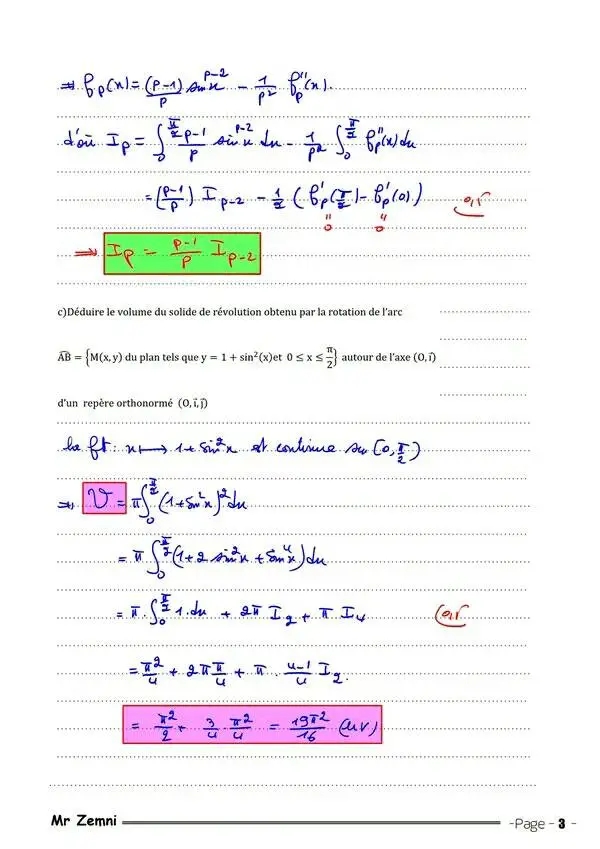 ⇒ f_p(x) = (p-1)/p sin^{p-2}x - 1/p² f''_p(x).
d'où I_p = ∫_0^{π/2} p-1/p sin^{p-2}x dx - 1/p² ∫_0^{π/2} f''_p(x) dx
= (p-1/p) I_{p-2} - 1/2 (f'_p(π/2) - f'_p(0))
" "
0 0
⇒ I_p = p-1/p I_{p-2}
c)Déduire le volume du solide de révolution obtenu par la rotation de l'arc
A͡B = {M(x, y) du plan tels que y = 1 + sin²(x)et 0 ≤ x ≤ π/2} autour de l'axe (O, i⃗)
d'un repère orthonormé (O, i⃗, j⃗)
La ft : x ↦ 1+sin²x est continue sur [0, π/2)
⇒ V = π∫_0^{π/2} (1+sin²x)² dx
= π ∫_0^{π/2} (1+2 sin²x + sin⁴x) dx
= π . ∫_0^{π/2} 1.dx + 2π I_2 + π I_4
= π²/4 + 2π π/4 + π . 4-1/4 I_2.
= π²/2 + 3/4 . π²/4 = 19π²/16 (uv)
Mr Zemni
-Page - 3 -